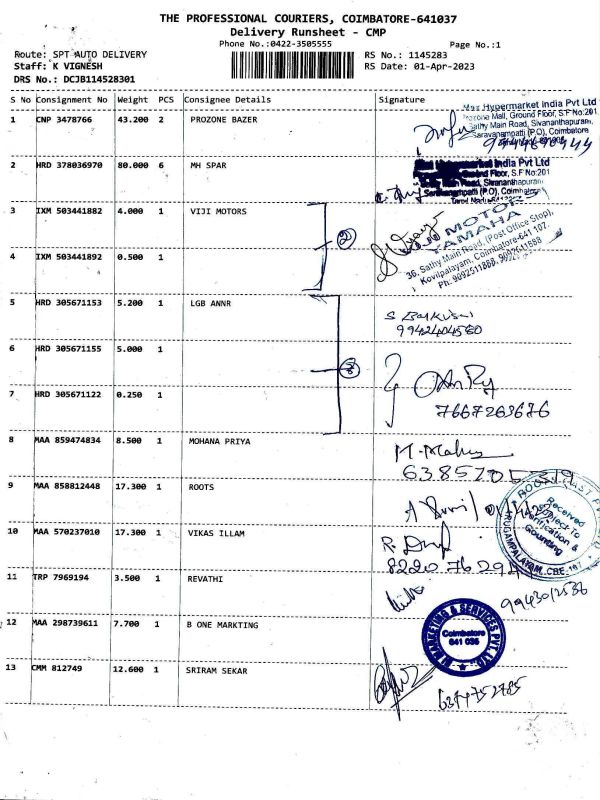 THE PROFESSIONAL COURIERS, COIMBATORE-641037
Delivery Runsheet - CMP
Phone No.:0422-3505555
Page No.:1
Route: SPT AUTO DELIVERY
RS No.: 1145283
Staff: K VIGNESH
RS Date: 01-Apr-2023
DRS No.: DCJB114528301
S No Consignment No Weight PCS Consignee Details Signature
1 CNP 3478766 43.200 2 PROZONE BAZER
Max Hypermarket India Pvt Ltd
Prozone Mall, Ground Floor, S.F No:201
Sathy Main Road, Sivananthapuram,
Saravanampatti (P.O), Coimbatore
2 HRD 378036970 80.000 6 MH SPAR
Max Hypermarket India Pvt Ltd
Ground Floor, S.F No:201
Sathy Main Road, Sivananthapuram
Saravanampatti (P.O), Coimbatore
3 IXM 503441882 4.000 1 VIJI MOTORS
2
MOTORS
YAMAHA
36, Sathy Main Road, (Post Office Stop),
Kovilpalayam, Coimbatore-641 107.
Ph: 9092511888, 9092611888
4 IXM 503441892 0.500 1
5 HRD 305671153 5.200 1 LGB ANNR
S Balkrishna
9942404580
6 HRD 305671155 5.000 1
3
7 HRD 305671122 0.250 1
7667263676
8 MAA 859474834 8.500 1 MOHANA PRIYA
9 MAA 858812448 17.300 1 ROOTS
Received
Subject To
Verification &
Counting
10 MAA 570237010 17.300 1 VIKAS ILLAM
11 TRP 7969194 3.500 1 REVATHI
9943012536
12 MAA 298739611 7.700 1 B ONE MARKTING
MARKETING & SERVICES PVT. LTD.
Coimbatore
641 035
13 CMM 812749 12.600 1 SRIRAM SEKAR
6374752785